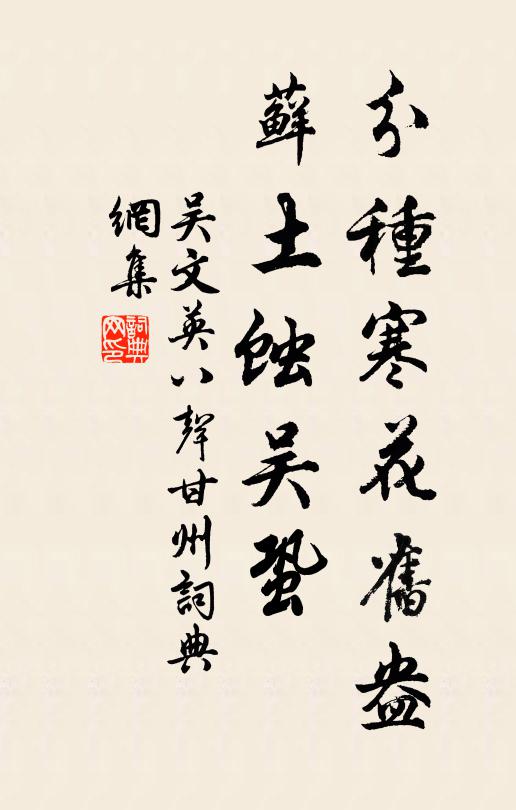 分種寒花舊盎
蘚土蝕吴蛩
吴文英八聲甘州詞典
網集
詞典網印